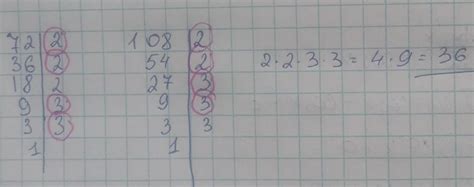 72 | 2 108 | 2
36 | 2 54 | 2 2·2·3·3 = 4·9 = 36
18 | 2 27 | 3
9 | 3 9 | 3
3 | 3 3 | 3
1 | 1 |